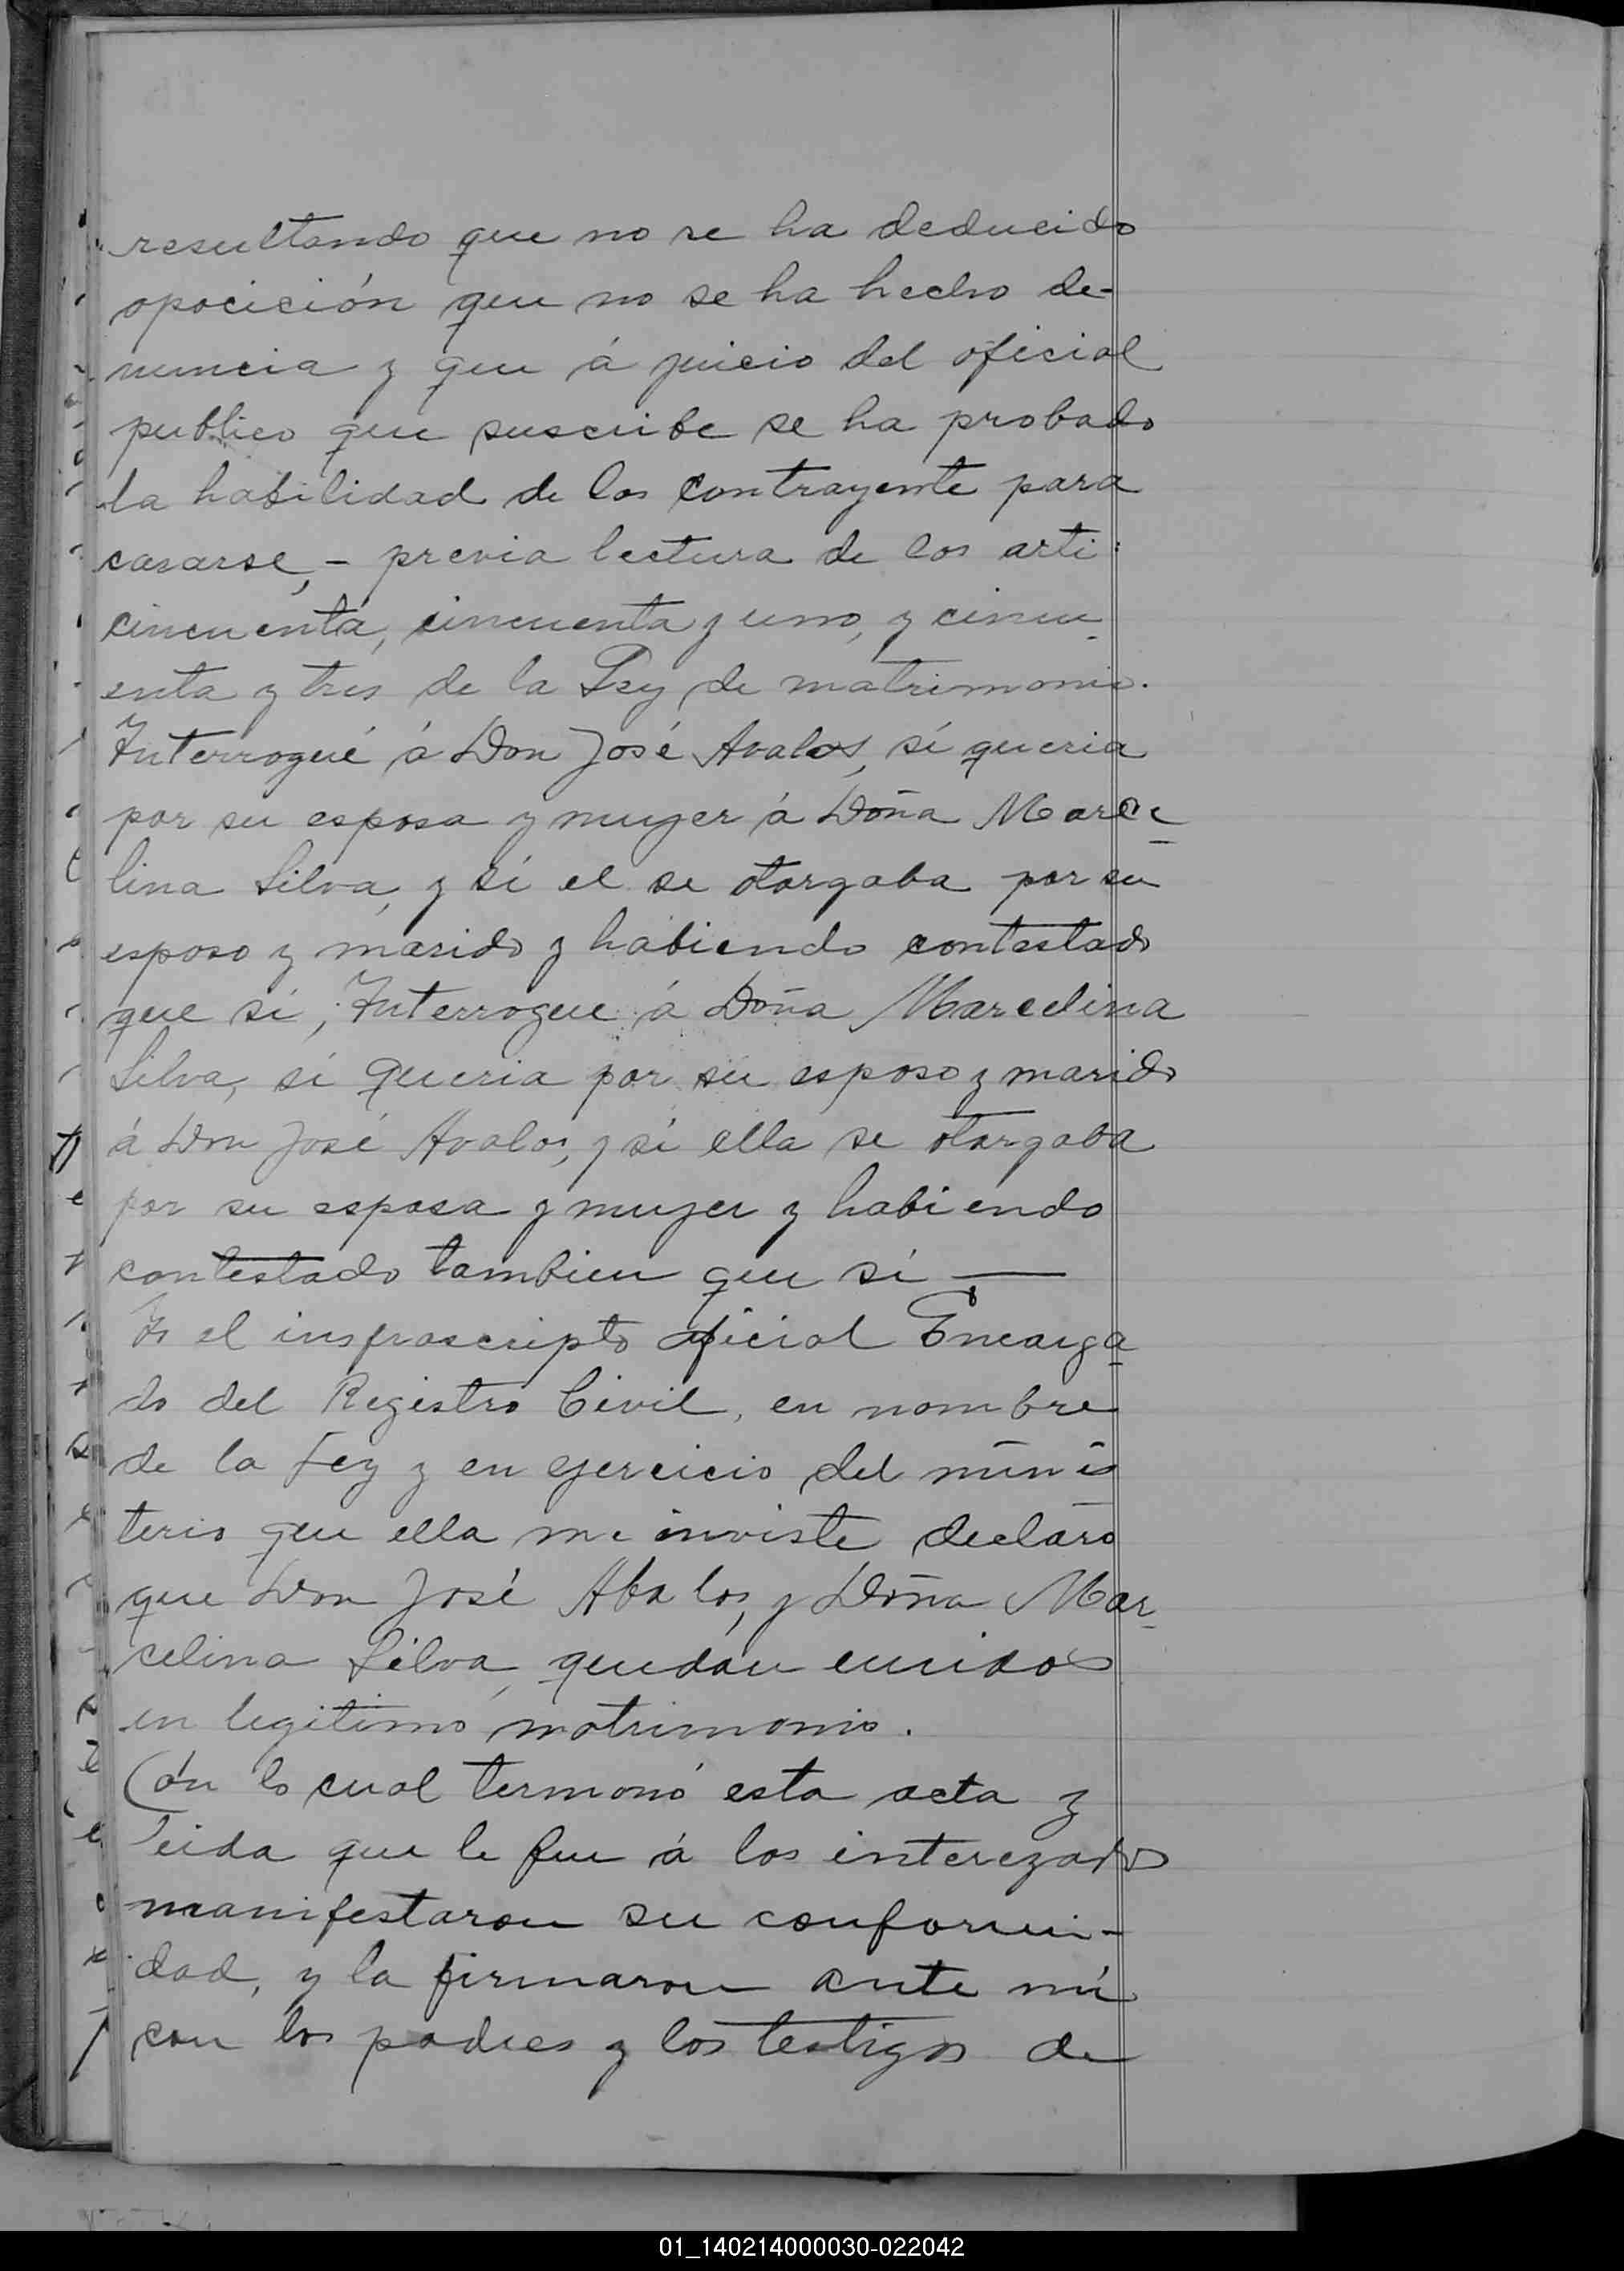 resultando que no se ha deducido
oposición que no se ha hecho de-
nuncia y que á juicio del oficial
publico que suscribe se ha probado
la habilidad de los contrayente para
casarse, - previa lectura de los arti:
cincuenta, cincuenta y uno, y cincu-
enta y tres de la Ley de matrimonio.
Interrogué á Don José Avalos, sí queria
por su esposa y mujer á Doña Marce-
lina Silva, y sí el se otorgaba por su
esposo y marido y habiendo contestado
que sí, Interrogue á Doña Marcelina
Silva, sí queria por su esposo y marido
á Don José Avalos, y sí ella se otorgaba
por su esposa y mujer y habiendo
contestado tambien que sí —
Yo el insfrascripto oficial Encarga-
do del Registro Civil, en nombre
de la Ley y en ejercicio del minis
terio que ella me inviste declaro
que Don José Abalos, y Doña Mar-
celina Silva, quedan unidos
en legitimo matrimonio.
Con lo cual termonó esta acta y
leida que le fue á los interezados
manifestaron su conformi-
dad, y la firmaron ante mí
con los padres y los testigos de
01_140214000030-022042